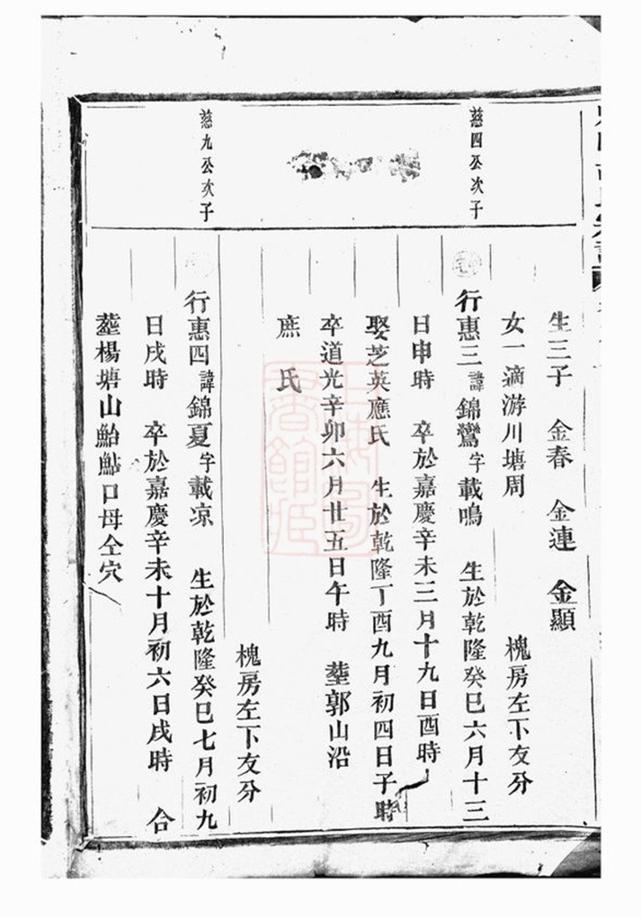 生三子 金春 金連 金顯
女一適游川塘周 槐房左下友分
慈四公次子
行惠三諱錦鸞字載鳴 生於乾隆癸巳六月十三
日申時 卒於嘉慶辛未三月十九日酉時
娶芝英應氏 生於乾隆丁酉九月初四日子時
卒道光辛卯六月廿五日午時 塟郭山沿
庶氏
槐房左下友分
慈九公次子
行惠四諱錦夏字載凉 生於乾隆癸巳七月初九
日戌時 卒於嘉慶辛未十月初六日戌時 合
塟楊塘山鮎口母仝穴